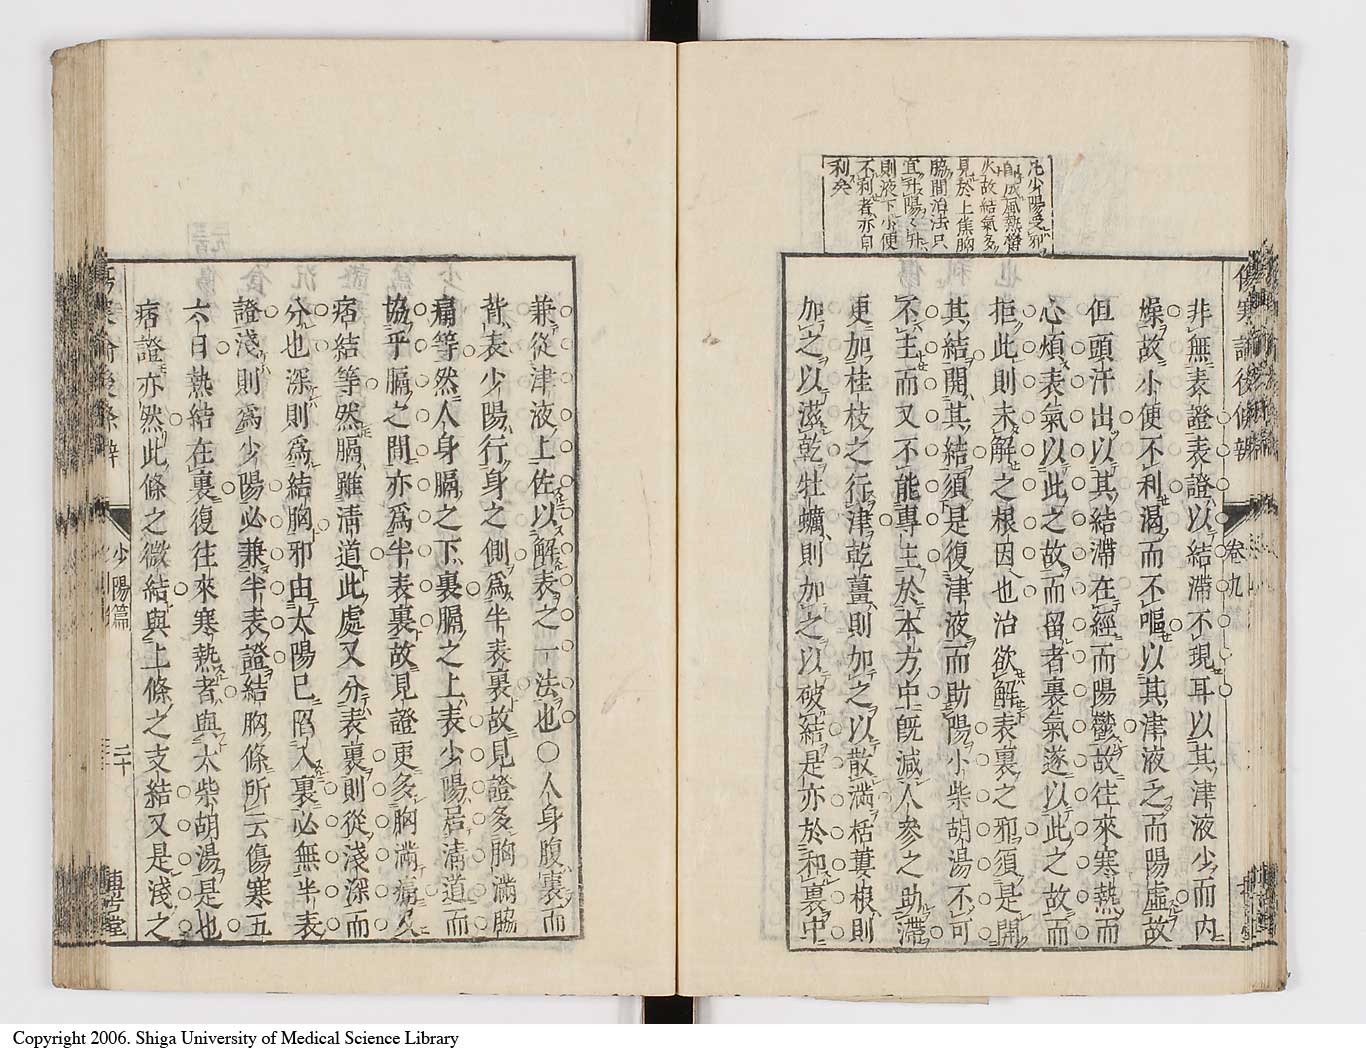 凡少陽受邪
火故結氣多
見於上焦胸
脇間治法只
宜升陽
則液下小便
不利者亦自
利矣
傷寒論後條辨
卷九
非無表證表證以結滯不現耳以其津液少而內
燥故小便不利渴而不嘔以其津液乏而陽虛故
但頭汗出以其結滯在經而陽鬱故往來寒熱而
心煩表氣以此之故而留者裏氣遂以此之故而
拒此則未解之根因也治欲解表裏之邪須是開
其結開其結須是復津液而助陽小柴胡湯不可
不主而又不能專主於本方中旣減人參之助滯
更加桂枝之行津乾薑則加之以散滿栝蔞根則
加之以滋乾牡蠣則加之以破結是亦於和裏中
兼從津液上佐以解表之一法也○人身腹裏而
背表少陽行身之側爲半表裏故見證多胸滿脇
痛等然人身膈之下裏膈之上表少陽居淸道而
協乎膈之間亦爲半表裏故見證更多胸滿痛久
痞結等然膈雖淸道此處又分表裏則從淺深而
分也深則爲結胸邪由太陽已陷入裏必無半表
證淺則爲少陽必兼半表證結胸條所云傷寒五
六日熱結在裏復往來寒熱者與大柴胡湯是也
痞證亦然此條之微結與上條之支結又是淺之
少陽篇
二十
堂
Copyright 2006. Shiga University of Medical Science Library